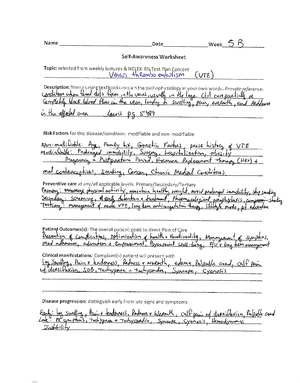 Name Date Week 5B
Self-Awareness Worksheet
Topic: selected from weekly lectures & NCLEX-RN Test Plan Content
Venous thromboembolism (VTE)
Description: from nursing textbooks of the pathophysiology in your own words. Provide reference.
condition when blood clots form in the veins, usually in the legs. Clot can partially or
completely block blood flow in the vein, leading to swelling, pain, warmth, and redness
in the affected area Lewis pg
Risk Factors for this disease/condition: modifiable and non-modifiable
Non-modifiable: Age, Family hx, Genetic Factors, past history of VTE
Modifiable: Prolonged immobility, Surgery, Hospitalization, obesity
Pregnancy + Postpartum Period, Hormone Replacement Therapy (HRT) +
oral contraceptives, Smoking, Cancer, Chronic Medical Conditions
Preventive care at any/all applicable levels. Primary/Secondary/Tertiary
Primary: physical activity, maintain healthy weight, avoid prolonged immobility, stop smoking
Secondary: screening, early detection + treatment, Pharmacological prophylaxis, compression stockings
Tertiary: management of acute VTE, long term anticoagulation therapy, lifestyle mods, pt education
Patient Outcome(s): The overall patient goals to direct Plan of Care
Prevention of complications, optimization of health + functionality, Management of symptoms,
med adherence, education + Empowerment, Psychosocial well-being, F/U + long term management
Clinical manifestations: Complaint(s) patient will present with
Leg Swelling, Pain + tenderness, Redness + warmth, edema, Palpable cord, Calf pain
on dorsiflexion, SOB, Tachypnea + Tachycardia, Syncope, Cyanosis
Disease progression: distinguish early from late signs and symptoms
Early: leg swelling, Pain + tenderness, Redness + Warmth, Calf pain on dorsiflexion, Palpable cord
Late: PE symptoms, Tachypnea + Tachycardia, Syncope, Cyanosis, Hemodynamic
Instability